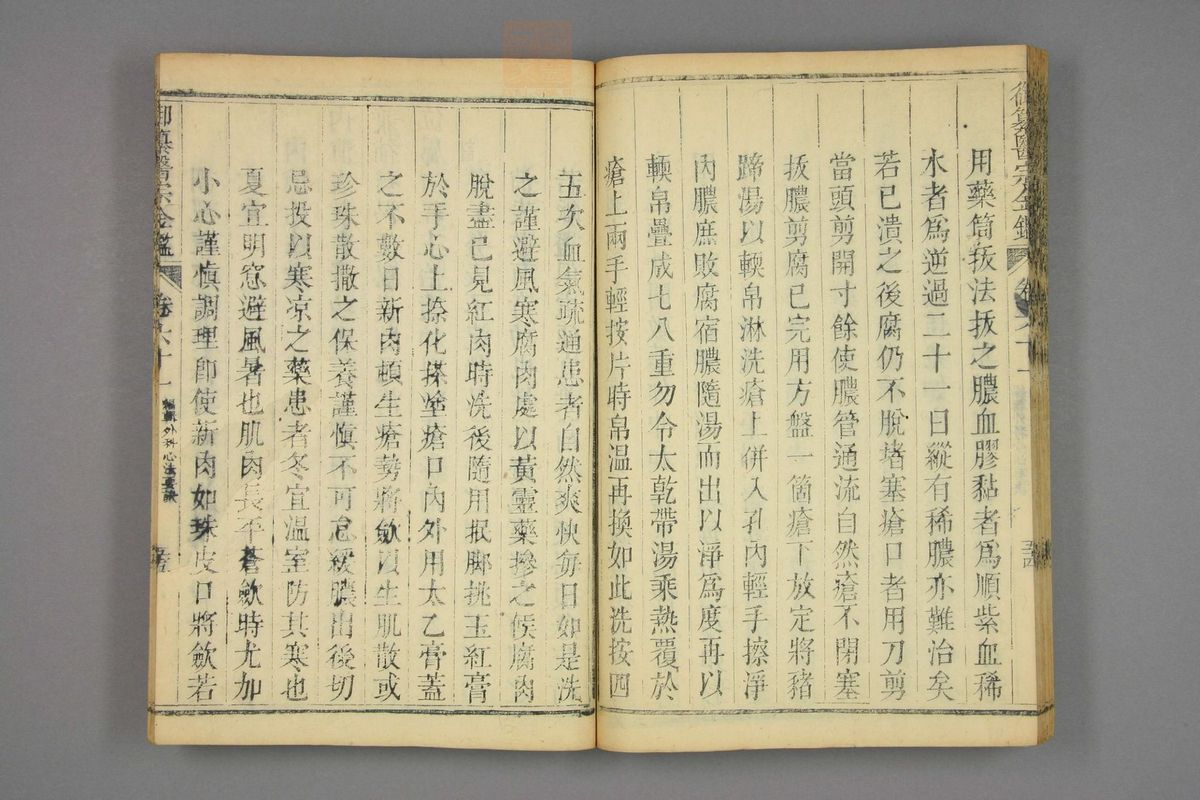 用藥筒拔法拔之膿血膠黏者爲順紫血稀
水者爲逆過二十一日縱有稀膿亦難治矣
若已潰之後腐仍不脫堵塞瘡口者用刀剪
當頭剪開寸餘使膿管通流自然瘡不閉塞
拔膿剪腐已完用方盤一箇瘡下放定將豬
蹄湯以軟帛淋洗瘡上併入孔內輕手擦淨
內膿庶敗腐宿膿隨湯而出以淨爲度再以
輭帛疊成七八重勿令太乾帶湯乘熱覆於
瘡上兩手輕按片時帛溫再換如此洗按四
五次血氣疏通患者自然爽快每日如是洗
之謹避風寒腐肉處以黃靈藥摻之候腐肉
脫盡已見紅肉時洗後隨用抿脚挑玉紅膏
於手心上捺化搽塗瘡口內外用太乙膏蓋
之不數日新肉頓生瘡勢將斂以生肌散或
珍珠散撒之保養謹慎不可怠緩膿出後切
忌投以寒凉之藥患者冬宜溫室防其寒也
夏宜明窓避風暑也肌肉長平蒼斂時尤加
小心謹慎調理卽使新肉如珠皮口將斂若
御纂醫宗金鑑
卷六十一
編輯外科心法要訣